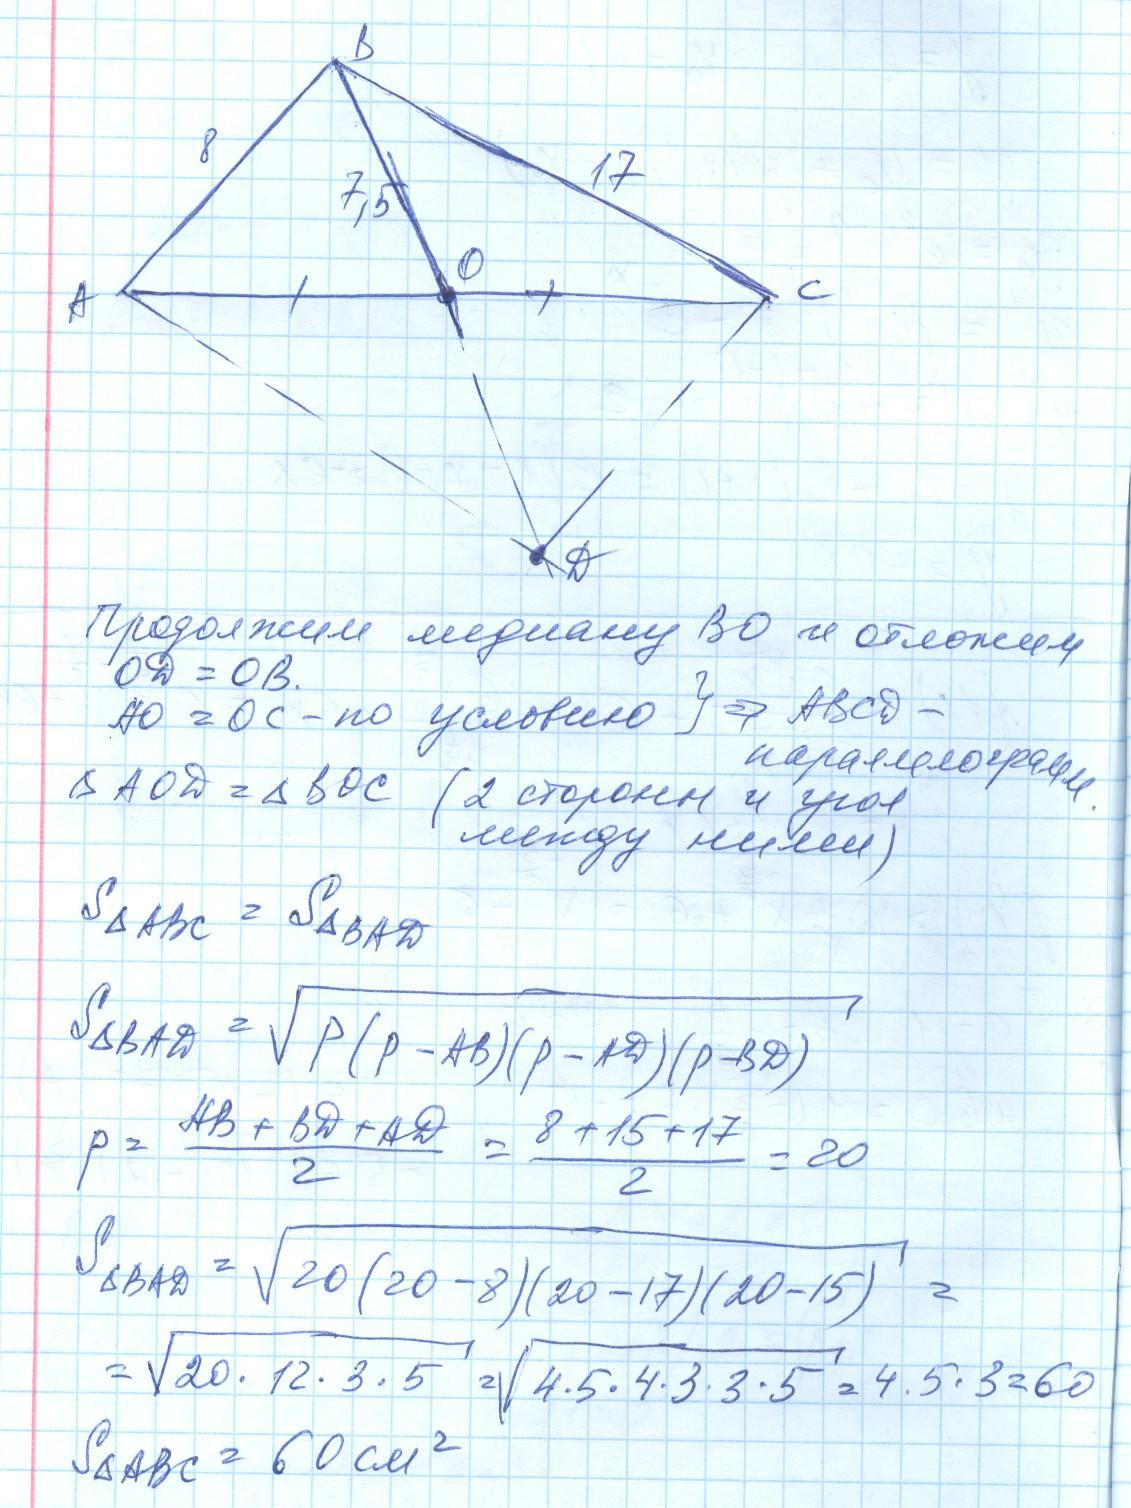 B
8
7,5
17
O
A
C
D
Продолжим медиану BO и отложим
OD = OB.
AO = OC - по условию } ⇒ ABCD -
параллелограмм.
△AOD = △BOC (2 стороны и угол
между ними)
S△ABC = S△BAD
S△BAD = √P(P-AB)(P-AD)(P-BD)
P = (AB + BD + AD)/2 = (8 + 15 + 17)/2 = 20
S△BAD = √20(20-8)(20-17)(20-15) =
= √20·12·3·5 = √4·5·4·3·3·5 = 4·5·3=60
S△ABC = 60 см²